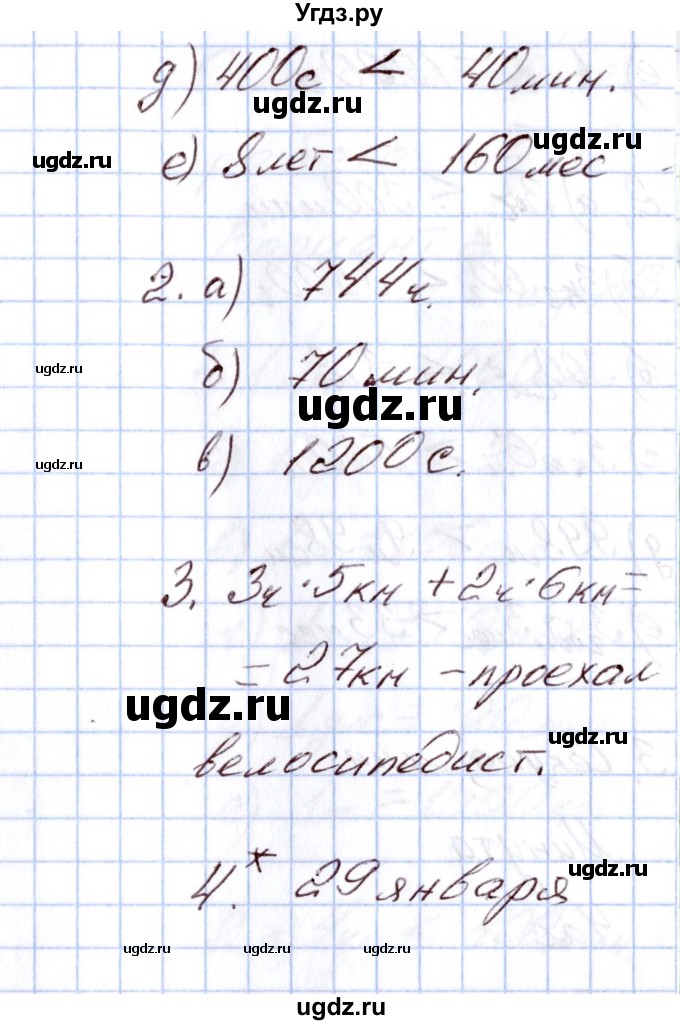 Угдз.ру
д) 400с < 40мин.
ugdz.ru
ugdz.ru
е) 8лет < 160мес
ugdz.ru
2. а) 744ч.
ugdz.ru
б) 70мин.
ugdz.ru
ugdz.ru
в) 1200с.
3. 3ч·5км + 2ч·6км=
ugdz.ru
= 27км - проехал
ugdz.ru
ugdz.ru
велосипедист.
ugdz.ru
4.* 29 января
ugdz.ru ugdz.ru ugdz.ru
ugdz.ru